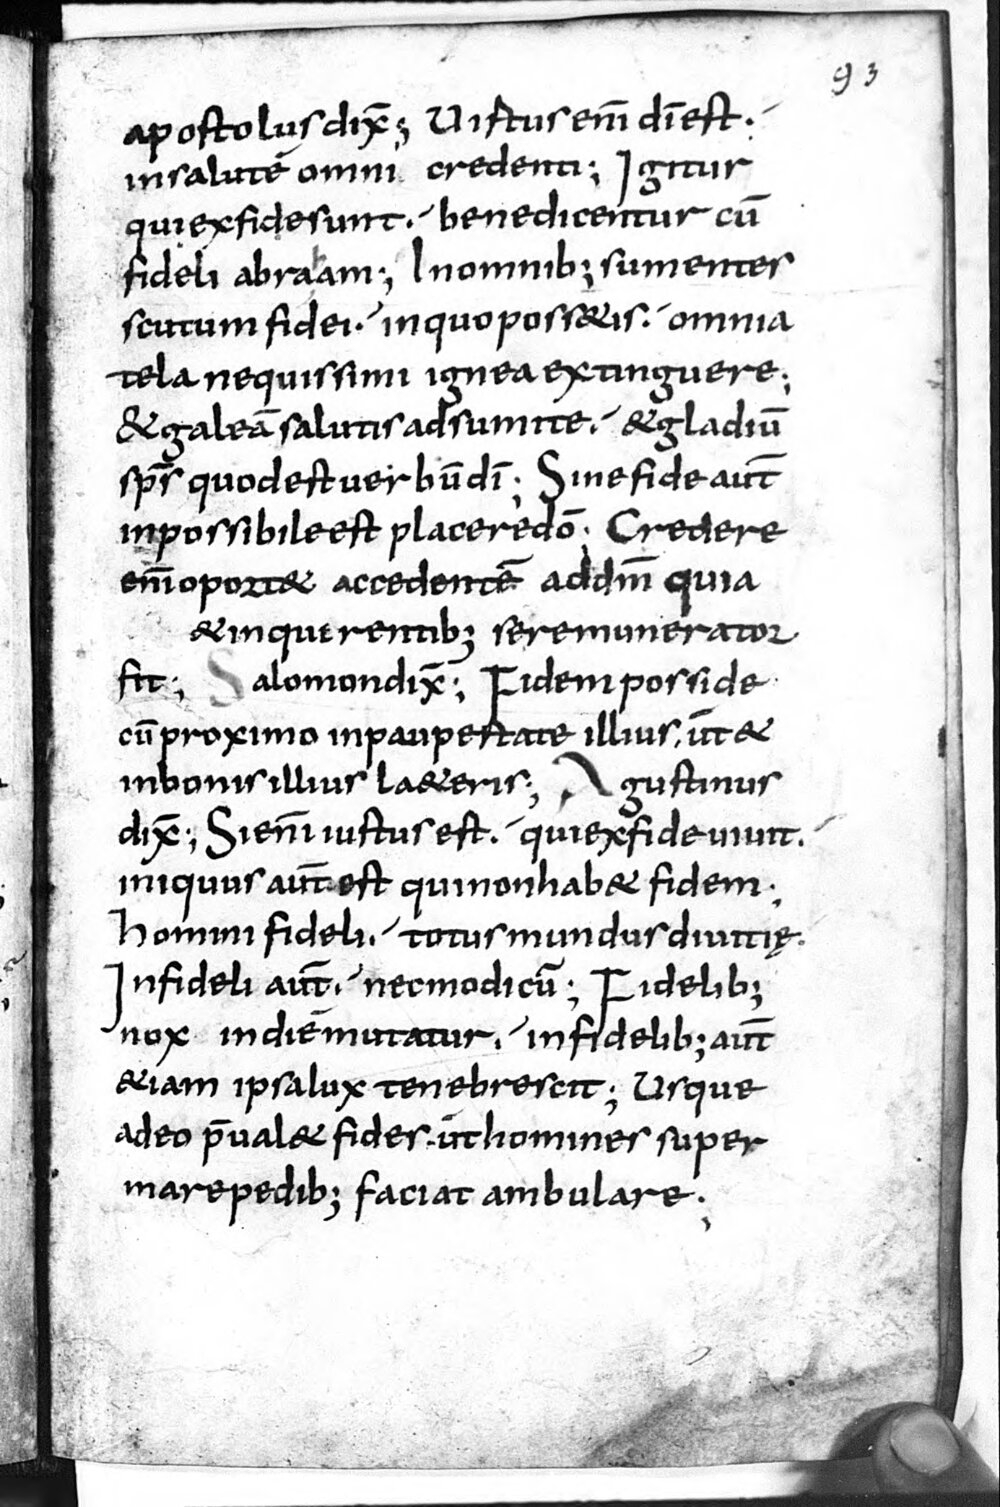 93
apostolus dix̄; Uistus enī dī est.
in salutē omni credenti; Igitur
qui ex fide sunt. benedicentur cū
fideli abraam; In omnib; sumentes
scutum fidei. in quo poss&is. omnia
tela nequissimi ignea extinguere;
& galeā salutis adsumite. & gladiū
sp̄s quod est uerbū dī; Sine fide aut̄
inpossibile est placere dō; Credere
enī oport& accedentē ad dm̄ quia
& inquerentib; se remunerator
fit; Salomon dix̄; Fidem posside
cū proximo in paupestate illius, ut̄ &
in bonis illius la&eris; Agustinus
dix̄; Si enī iustus est. qui ex fide uiuit.
iniquus aut̄ est qui non hab& fidem;
homini fideli. totus mundus diuitię.
Infideli aut̄. nec modicū; Fidelib;
nox in diē mutatur. infidelib; aut̄
&iam ipsa lux tenebrescit; Usque
adeo p̄ual& fides. ut̄ homines super
mare pedib; faciat ambulare;